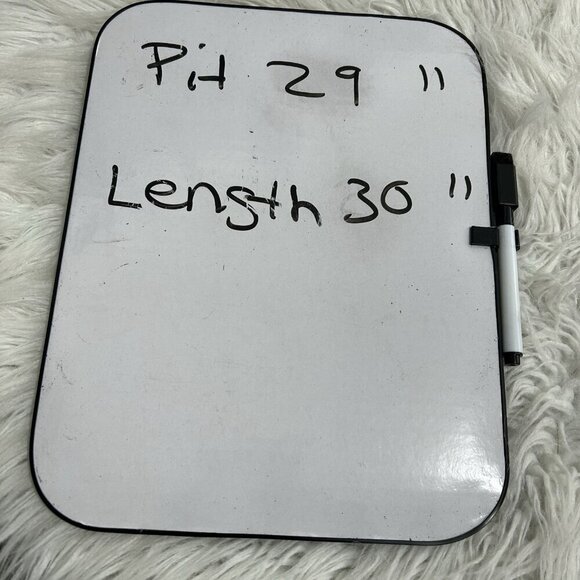 Pit 29 "
Length 30 "